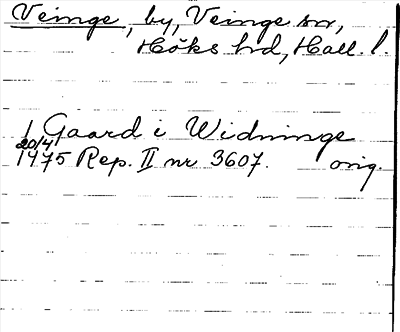 Veinge, by, Veinge sn,
Höks hd, Hall. l.
1 Gaard i Widninge
20/4
1475 Rep. II nr 3607. orig.